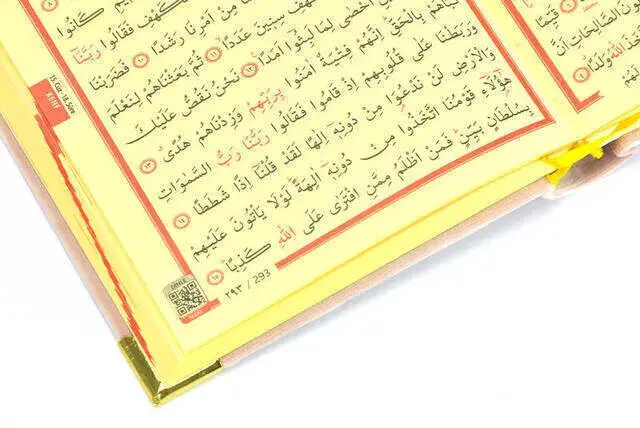 كَانُوا
كَهْفِ فَقَالُوا رَبَّنَا
مِنْ اَمْرِنَا رَشَدًا ١٠ فَضَرَبْنَا
كَهْفِ سِنِينَ عَدَدًا ١١ ثُمَّ بَعَثْنَاهُمْ لِنَعْلَمَ
اَحْصٰى لِمَا لَبِثُٓوا اَمَدًا ١٢ نَحْنُ نَقُصُّ عَلَيْكَ
نَبَاَهُمْ بِالْحَقِّ اِنَّهُمْ فِتْيَةٌ اٰمَنُوا بِرَبِّهِمْ وَزِدْنَاهُمْ هُدًى ١٣
وَرَبَطْنَا عَلٰى قُلُوبِهِمْ اِذْ قَامُوا فَقَالُوا رَبُّنَا رَبُّ السَّمٰوَاتِ
وَالْاَرْضِ لَنْ نَدْعُوَا مِنْ دُونِهِ اِلٰهًا لَقَدْ قُلْنَا اِذًا شَطَطًا ١٤
هٰٓؤُلَٓاءِ قَوْمُنَا اتَّخَذُوا مِنْ دُونِهِ اٰلِهَةً لَوْلَا يَاْتُونَ عَلَيْهِمْ
بِسُلْطَانٍ بَيِّنٍ فَمَنْ اَظْلَمُ مِمَّنِ افْتَرٰى عَلَى اللّٰهِ كَذِبًا ١٥
٢٩٣ / 293
DİNLE
15. Cüz - 18. Sûre
KEHF
قَيِّمًا
الصَّالِحَاتِ اَنَّ
اللّٰهُ وَلَدًا ٤